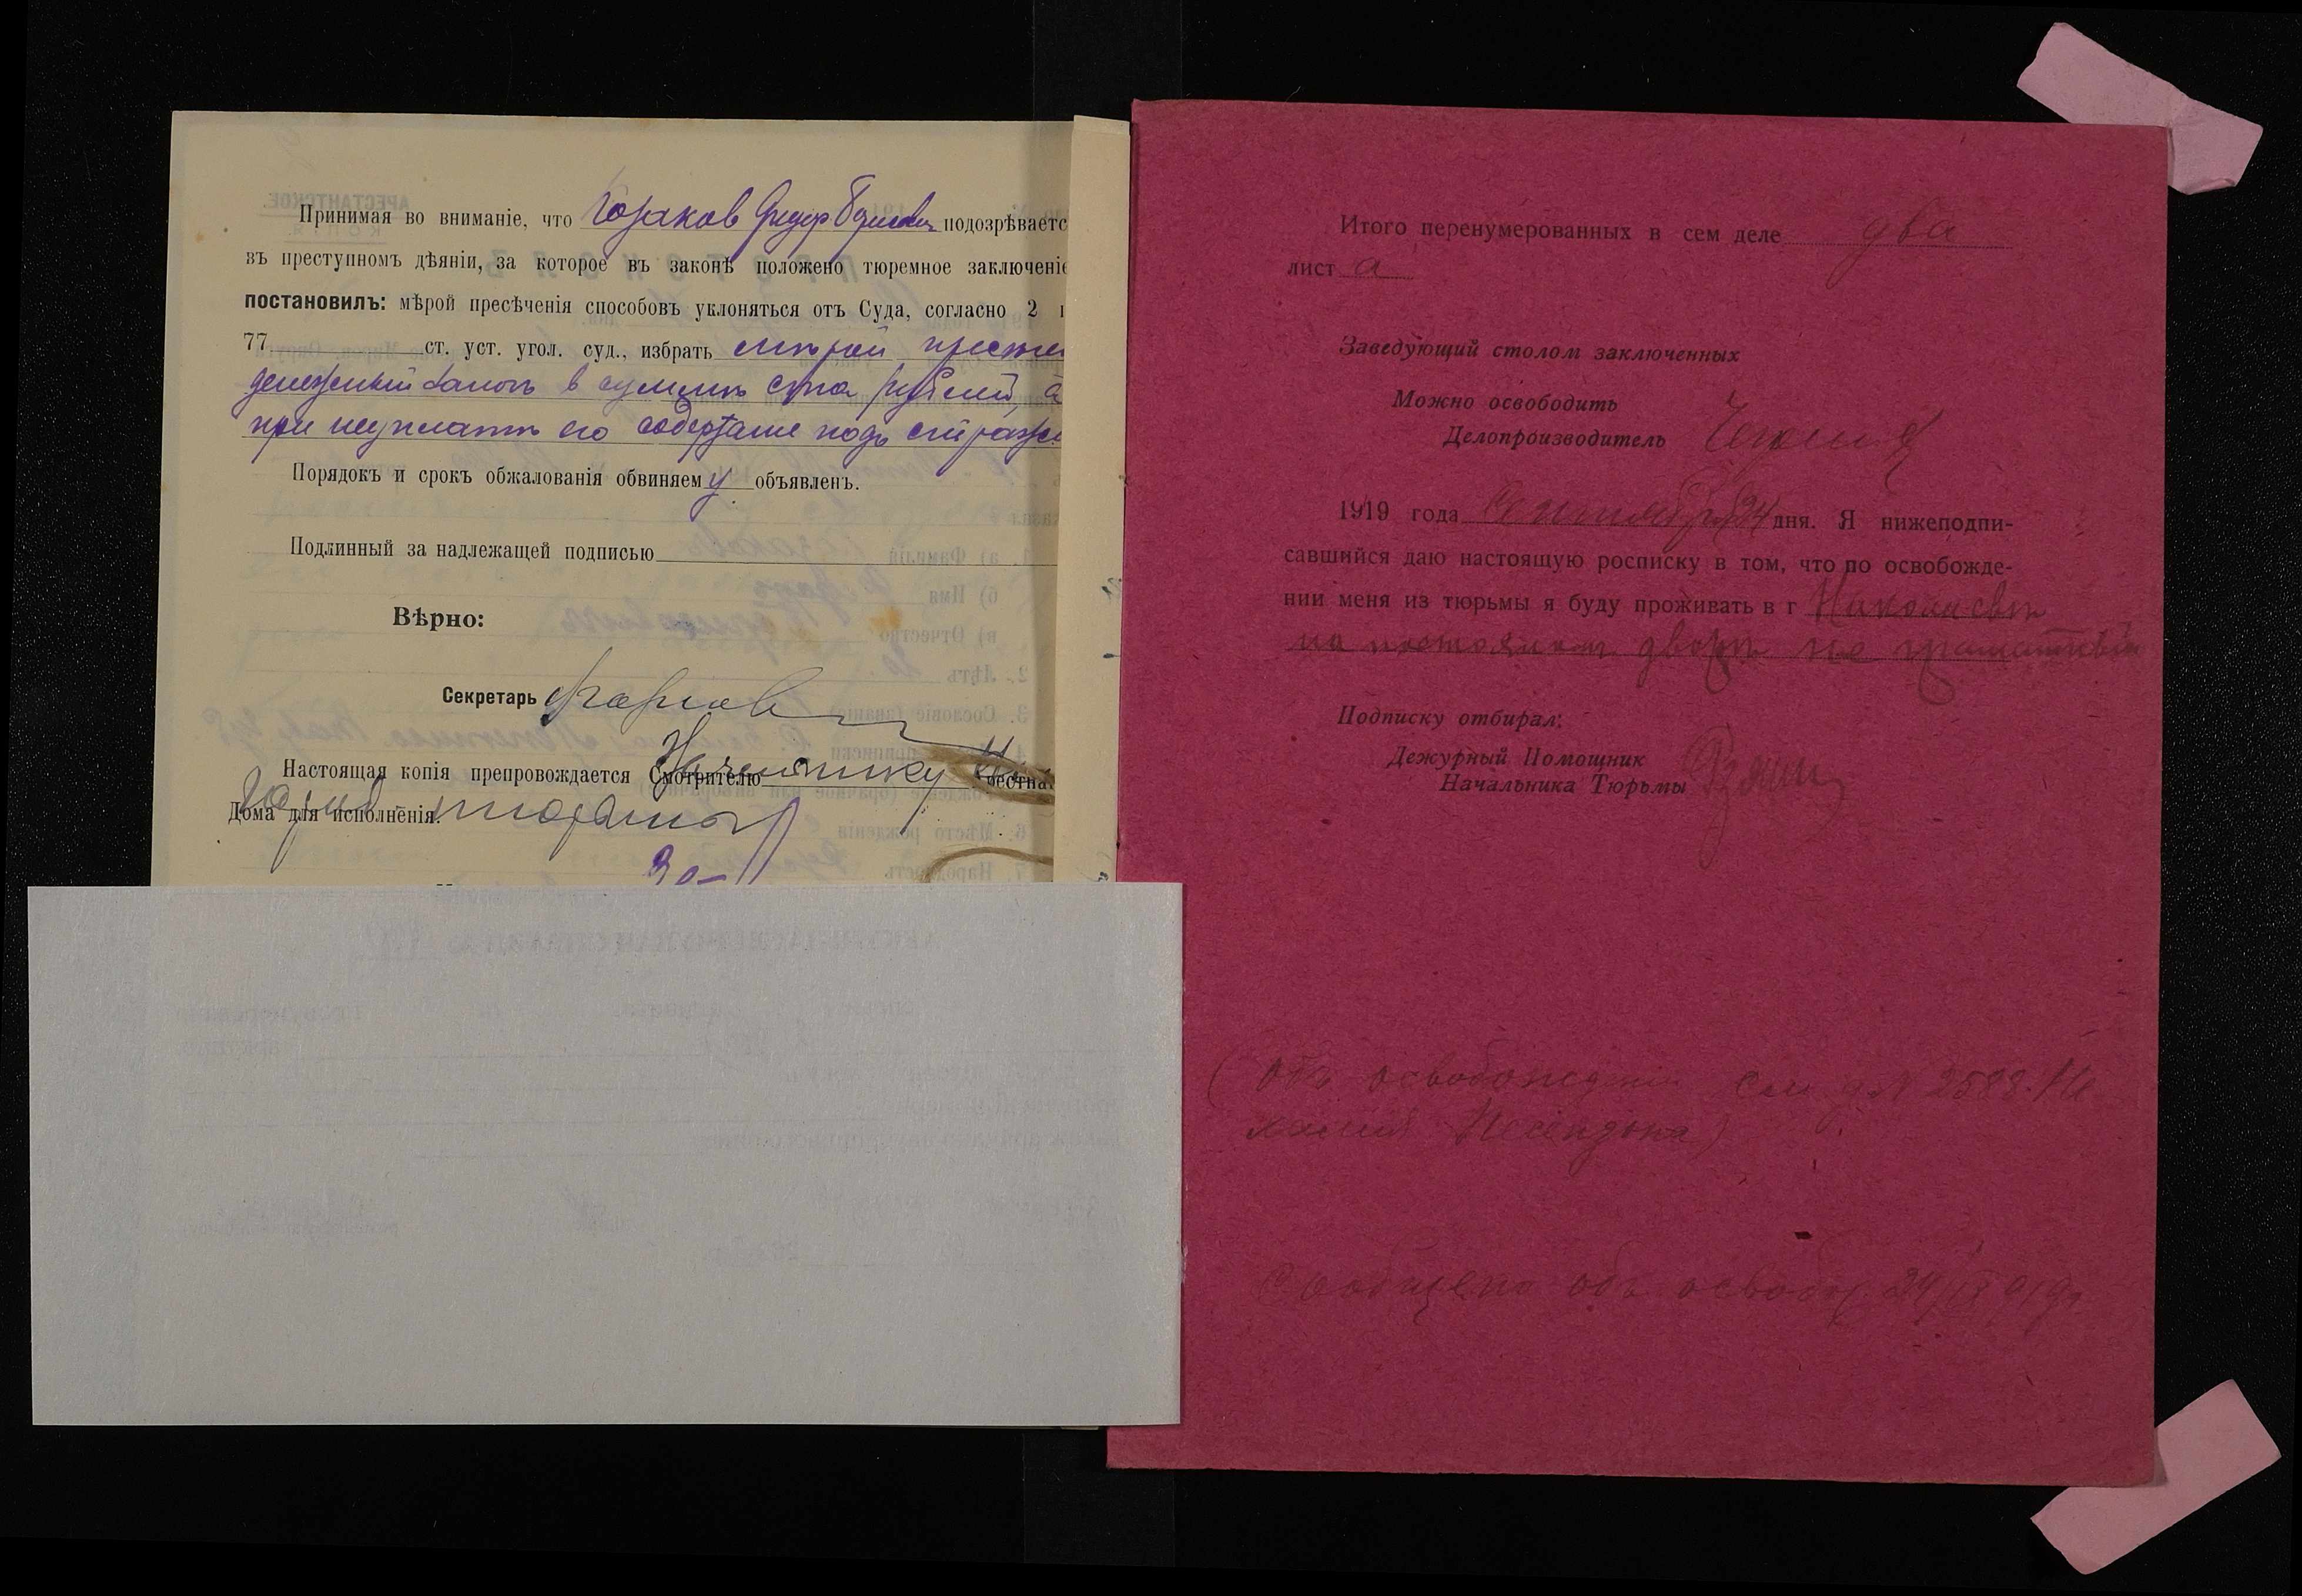 Принимая во вниманіе, что Козаков Федор Борисович подозрѣваетс
въ преступномъ дѣяніи, за которое въ законѣ положено тюремное заключеніе
постановилъ: мѣрой пресѣченія способовъ уклоняться отъ Суда, согласно 2
77 ст. уст. угол. суд., избрать
денежный залогъ в суммѣ ста рублей, а
при неуплатѣ его содержание подъ стражей
Порядокъ и срокъ обжалованія обвиняему объявленъ.
Подлинный за надлежащей подписью
Вѣрно:
Секретарь
Настоящая копія препровождается Смотрителю Начальнику
Дома для исполненія. тюрьмы
Итого перенумерованных в сем деле два
лист а
Заведующий столом заключенных
Можно освободить
Делопроизводитель
1919 года Сентября 24 дня. Я нижеподпи-
савшийся даю настоящую росписку в том, что по освобожде-
нии меня из тюрьмы я буду проживать в г Николаевѣ
на постоялом дворѣ не грамотный
Подписку отбирал:
Дежурный Помощник
Начальника Тюрьмы
(Объ освобождении см. д. N 2588
Сообщено объ освоб. 24/IX 919г.